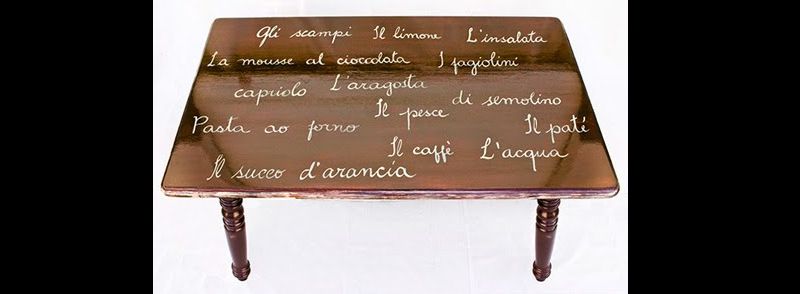 Gli scampi Il limone L'insalata
La mousse al cioccolata I fagiolini
capriolo L'aragosta
Il pesce di semolino
Pasta ao forno Il paté
Il caffè L'acqua
Il succo d'arancia